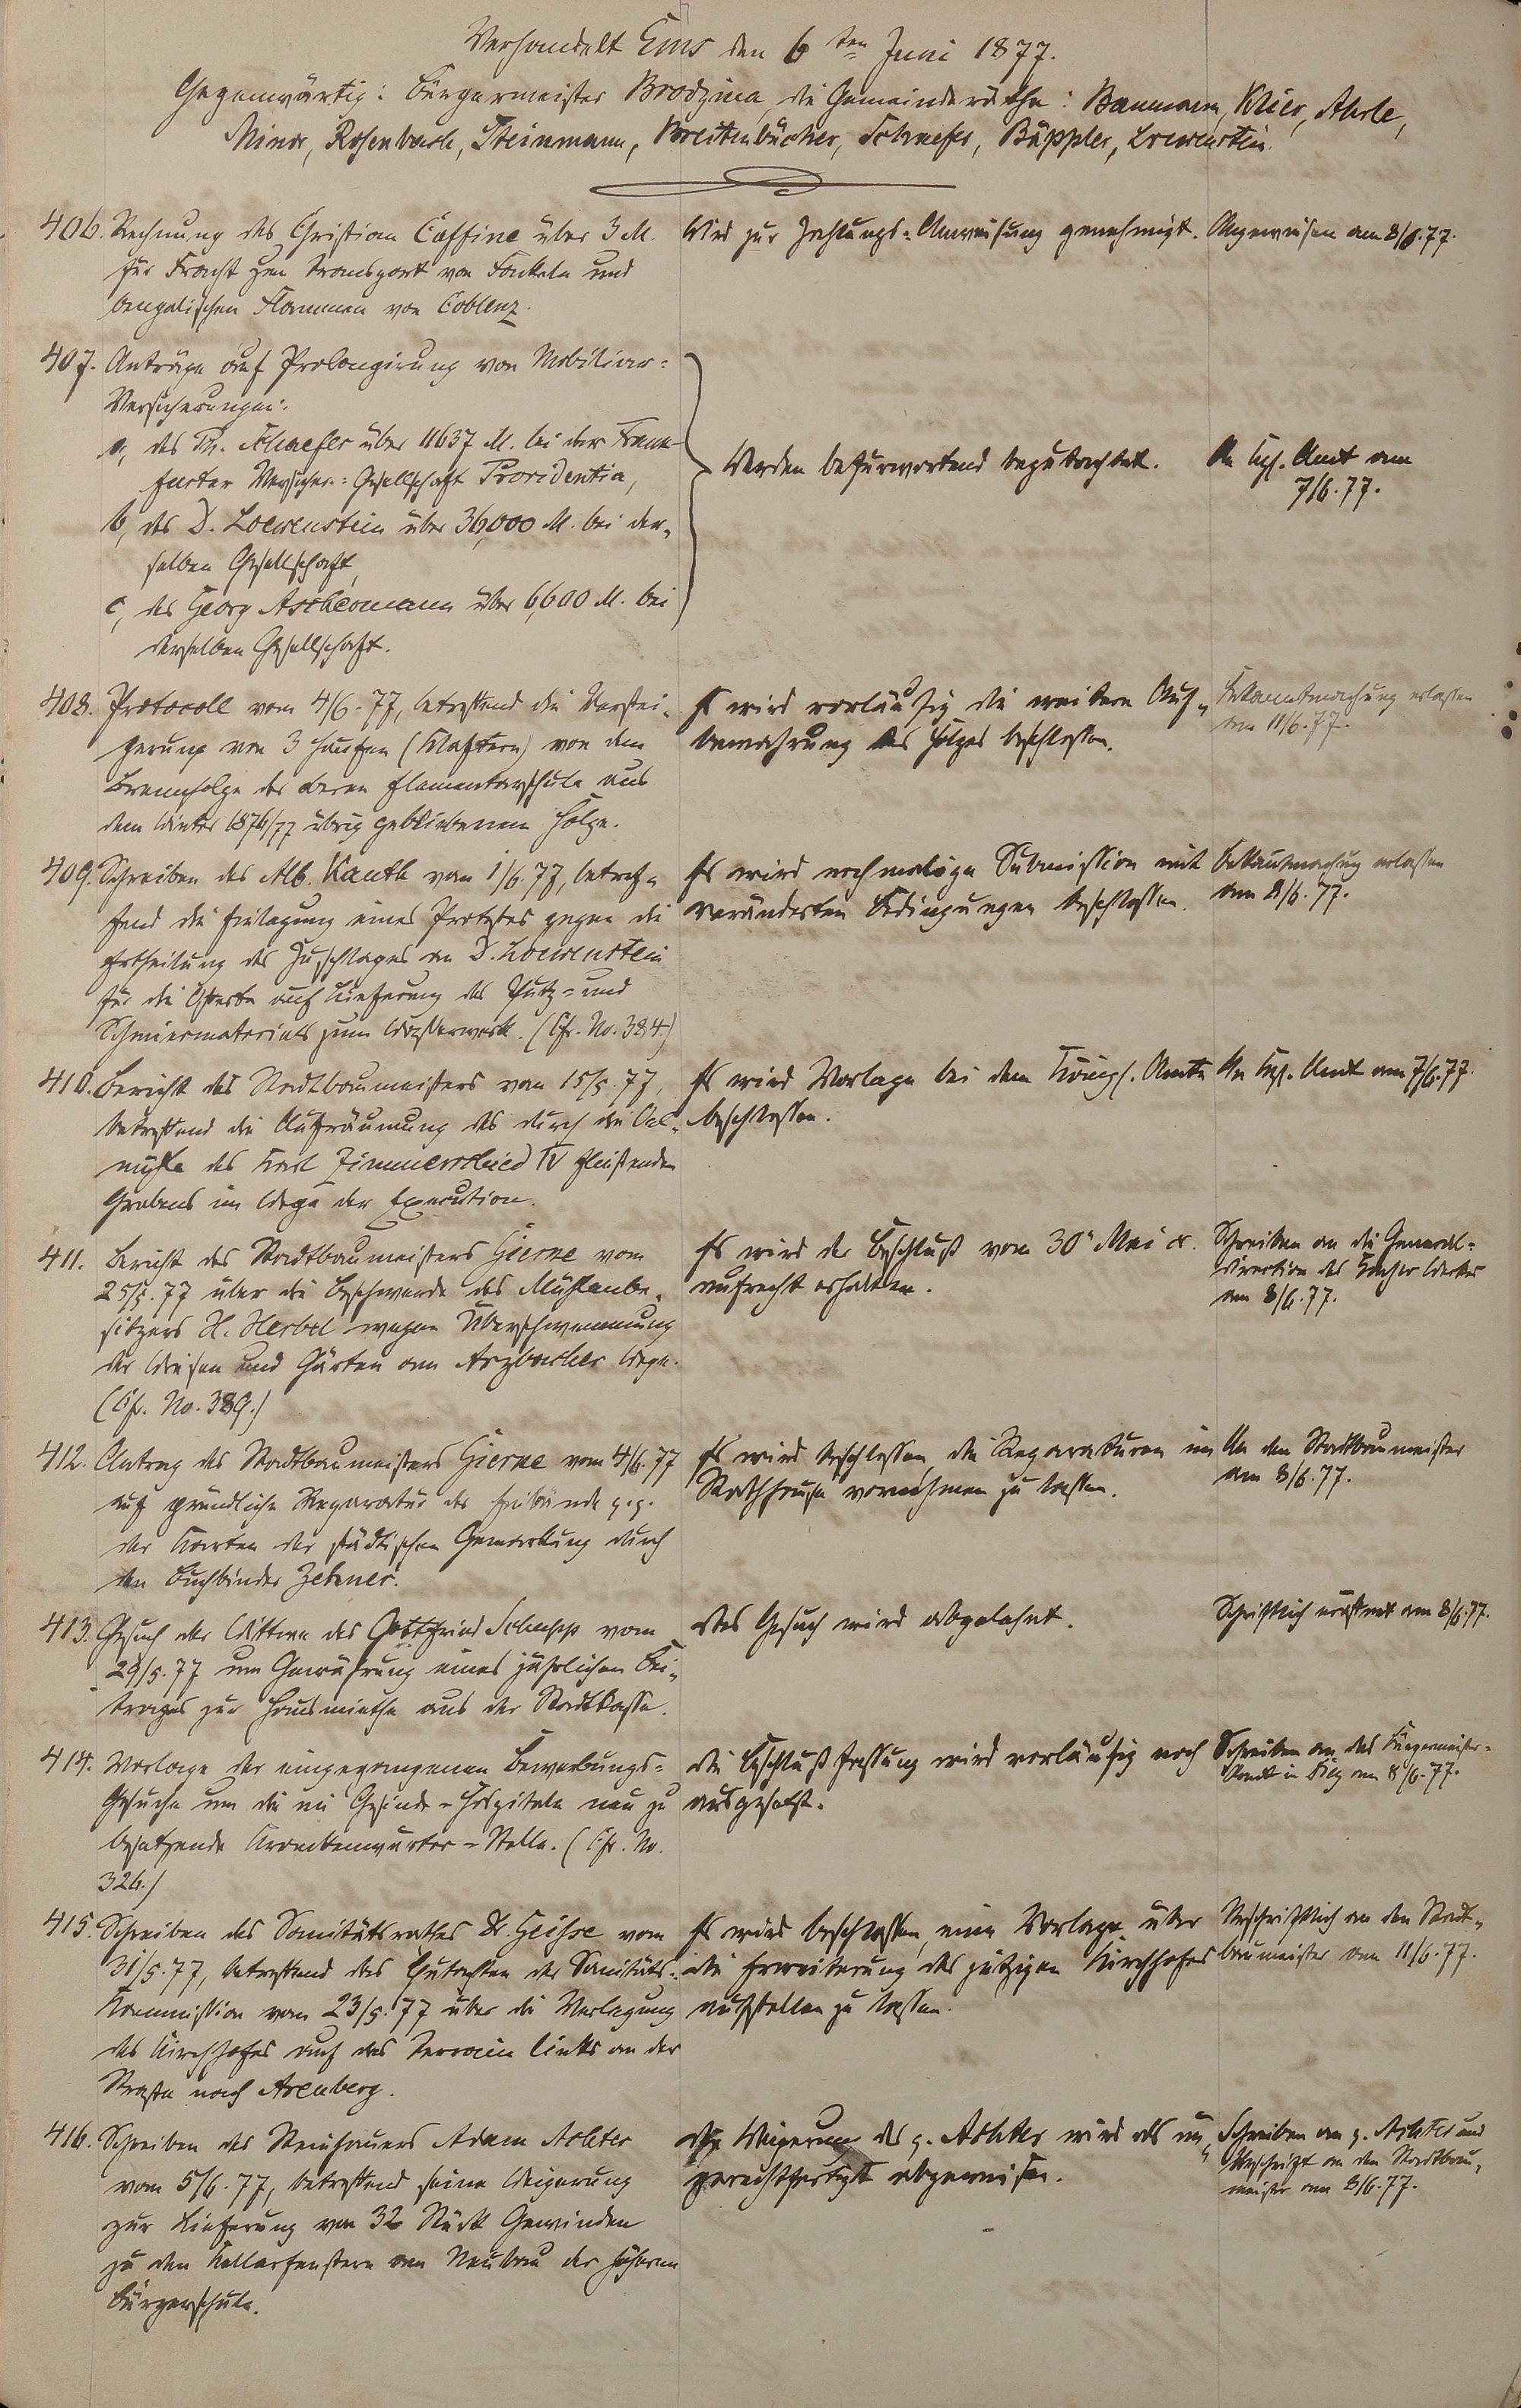 Verhandelt Ems den 6ten Juni 1877.
Gegenwärtig: Bürgermeister Brodzina, die Gemeinderäthe: Baumann, Klier, Ahrle,
Minor, Rosenbach, Steinmann, Breitenbücher, Schaefer, Bäppler, Loewenstein.
406. Rechnung des Christian Caffine über 3 M.
für Fracht zum Transport von Fackeln und
bengalischen Flammen von Coblenz.
Wird zur Zahlungs-Anweisung genehmigt.
Angewiesen am 8/6. 77.
407. Anträge auf Prolongirung von Mobiliar-
Versicherungen:
a, des Th. Schaefer über 11637 M. bei der Frank-
furter Versicher.-Gesellschaft Providentia,
b, des D. Loewenstein über 36,000 M. bei der-
selben Gesellschaft,
c, des Georg Aschemann über 6,600 M. bei
derselben Gesellschaft.
Werden befürwortend begutachtet.
An Kgl. Amt am
7/6. 77.
408. Protocoll vom 4/6. 77, betreffend die Verstei-
gerung von 3 Haufen (Klaftern) von dem
Brennholze der oberen Elementarschule aus
dem Winter 1876/77 übrig gebliebenem Holze.
Es wird vorläufig die weitere Auf-
bewahrung des Holzes beschlossen.
Bekanntmachung erlassen
am 11/6. 77.
409. Schreiben des Alb. Kauth vom 1/6. 77, betref-
fend die Einlegung eines Protestes gegen die
Ertheilung des Zuschlages an D. Loewenstein
für die Offerte auf Lieferung des Putz- und
Schmiermaterials zum Wasserwerk. (Cfr. No. 384)
Es wird nochmalige Submission mit
veränderten Bedingungen beschlossen.
Bekanntmachung erlassen
am 8/6. 77.
410. Bericht des Stadtbaumeisters vom 15/5. 77,
betreffend die Aufräumung des durch die Oel-
mühle des Karl Zimmerschied IV fließenden
Grabens im Wege der Execution.
Es wird Vorlage bei dem Königl. Amte
beschlossen.
An Kgl. Amt am 7/6. 77.
411. Bericht des Stadtbaumeisters Gierne vom
25/5. 77 über die Beschwerde des Mühlenbe-
sitzers H. Herbel wegen Überschwemmung
der Wiesen und Gärten am Arzbacher Wege.
(Cfr. No. 389.)
Es wird der Beschluß vom 30n Mai cr.
aufrecht erhalten.
Schreiben an die General-
direction des Emser Werkes
am 8/6. 77.
412. Antrag des Stadtbaumeisters Gierne vom 4/6. 77
auf gründliche Reparatur der Einbände p.p.
der Karten der städtischen Gemarkung durch
den Buchbinder Zehner.
Es wird beschlossen, die Reparaturen im
Rathhause vornehmen zu lassen.
An den Stadtbaumeister
am 8/6. 77.
413. Gesuch der Wittwe des Gottfried Schupp vom
29/5. 77 um Gewährung eines jährlichen Bei-
trages zur Hausmiethe aus der Stadtkasse.
Das Gesuch wird abgelehnt.
Schriftlich eröffnet am 8/6. 77.
414. Vorlage der eingegangenen Bewerbungs-
Gesuche um die im Gesinde-Hospitale neu zu
besetzende Krankenwärter-Stelle. (Cfr. No.
326.)
Die Beschlußfassung wird vorläufig noch
ausgesetzt.
Schreiben an das Bürgermeister-
Amt in Diez am 8/6. 77.
415. Schreiben des Sanitätsrathes Dr. Geisse vom
31/5. 77, betreffend das Gutachten der Sanitäts-
Kommission vom 23/5. 77 über die Verlegung
des Kirchhofes auf das Terrain links an der
Straße nach Arenberg.
Es wird beschlossen, eine Vorlage über
die Erweiterung des jetzigen Kirchhofes
aufstellen zu lassen.
Abschriftlich an den Stadt-
baumeister am 11/6. 77.
416. Schreiben des Steinhauers Adam Achter
vom 5/6. 77, betreffend seine Weigerung
zur Lieferung von 32 Stück Gewinden
zu den Kellerfenstern am Neubau der höheren
Bürgerschule.
Die Weigerung des p. Achter wird als un-
gerechtfertigt abgewiesen.
Schreiben an p. Achter und
Abschrift an den Stadtbau-
meister am 8/6. 77.